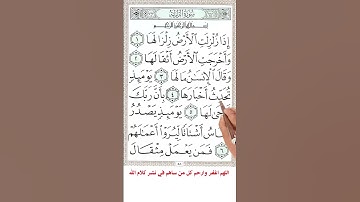 بِسْمِ ٱللَّهِ ٱلرَّحْمَٰنِ ٱلرَّحِيمِ
إِذَا زُلْزِلَتِ ٱلْأَرْضُ زِلْزَالَهَا ١
وَأَخْرَجَتِ ٱلْأَرْضُ أَثْقَالَهَا ٢
وَقَالَ ٱلْإِنسَٰنُ مَا لَهَا ٣ يَوْمَئِذٍ
تُحَدِّثُ أَخْبَارَهَا ٤ بِأَنَّ رَبَّكَ
حَىٰ لَهَا ٥ يَوْمَئِذٍ يَصْدُرُ
اسُ أَشْتَاتًا لِّيُرَوْا۟ أَعْمَٰلَهُمْ
٦ فَمَن يَعْمَلْ مِثْقَالَ
اللهم اغفر وارحم كل من ساهم في نشر كلام الله